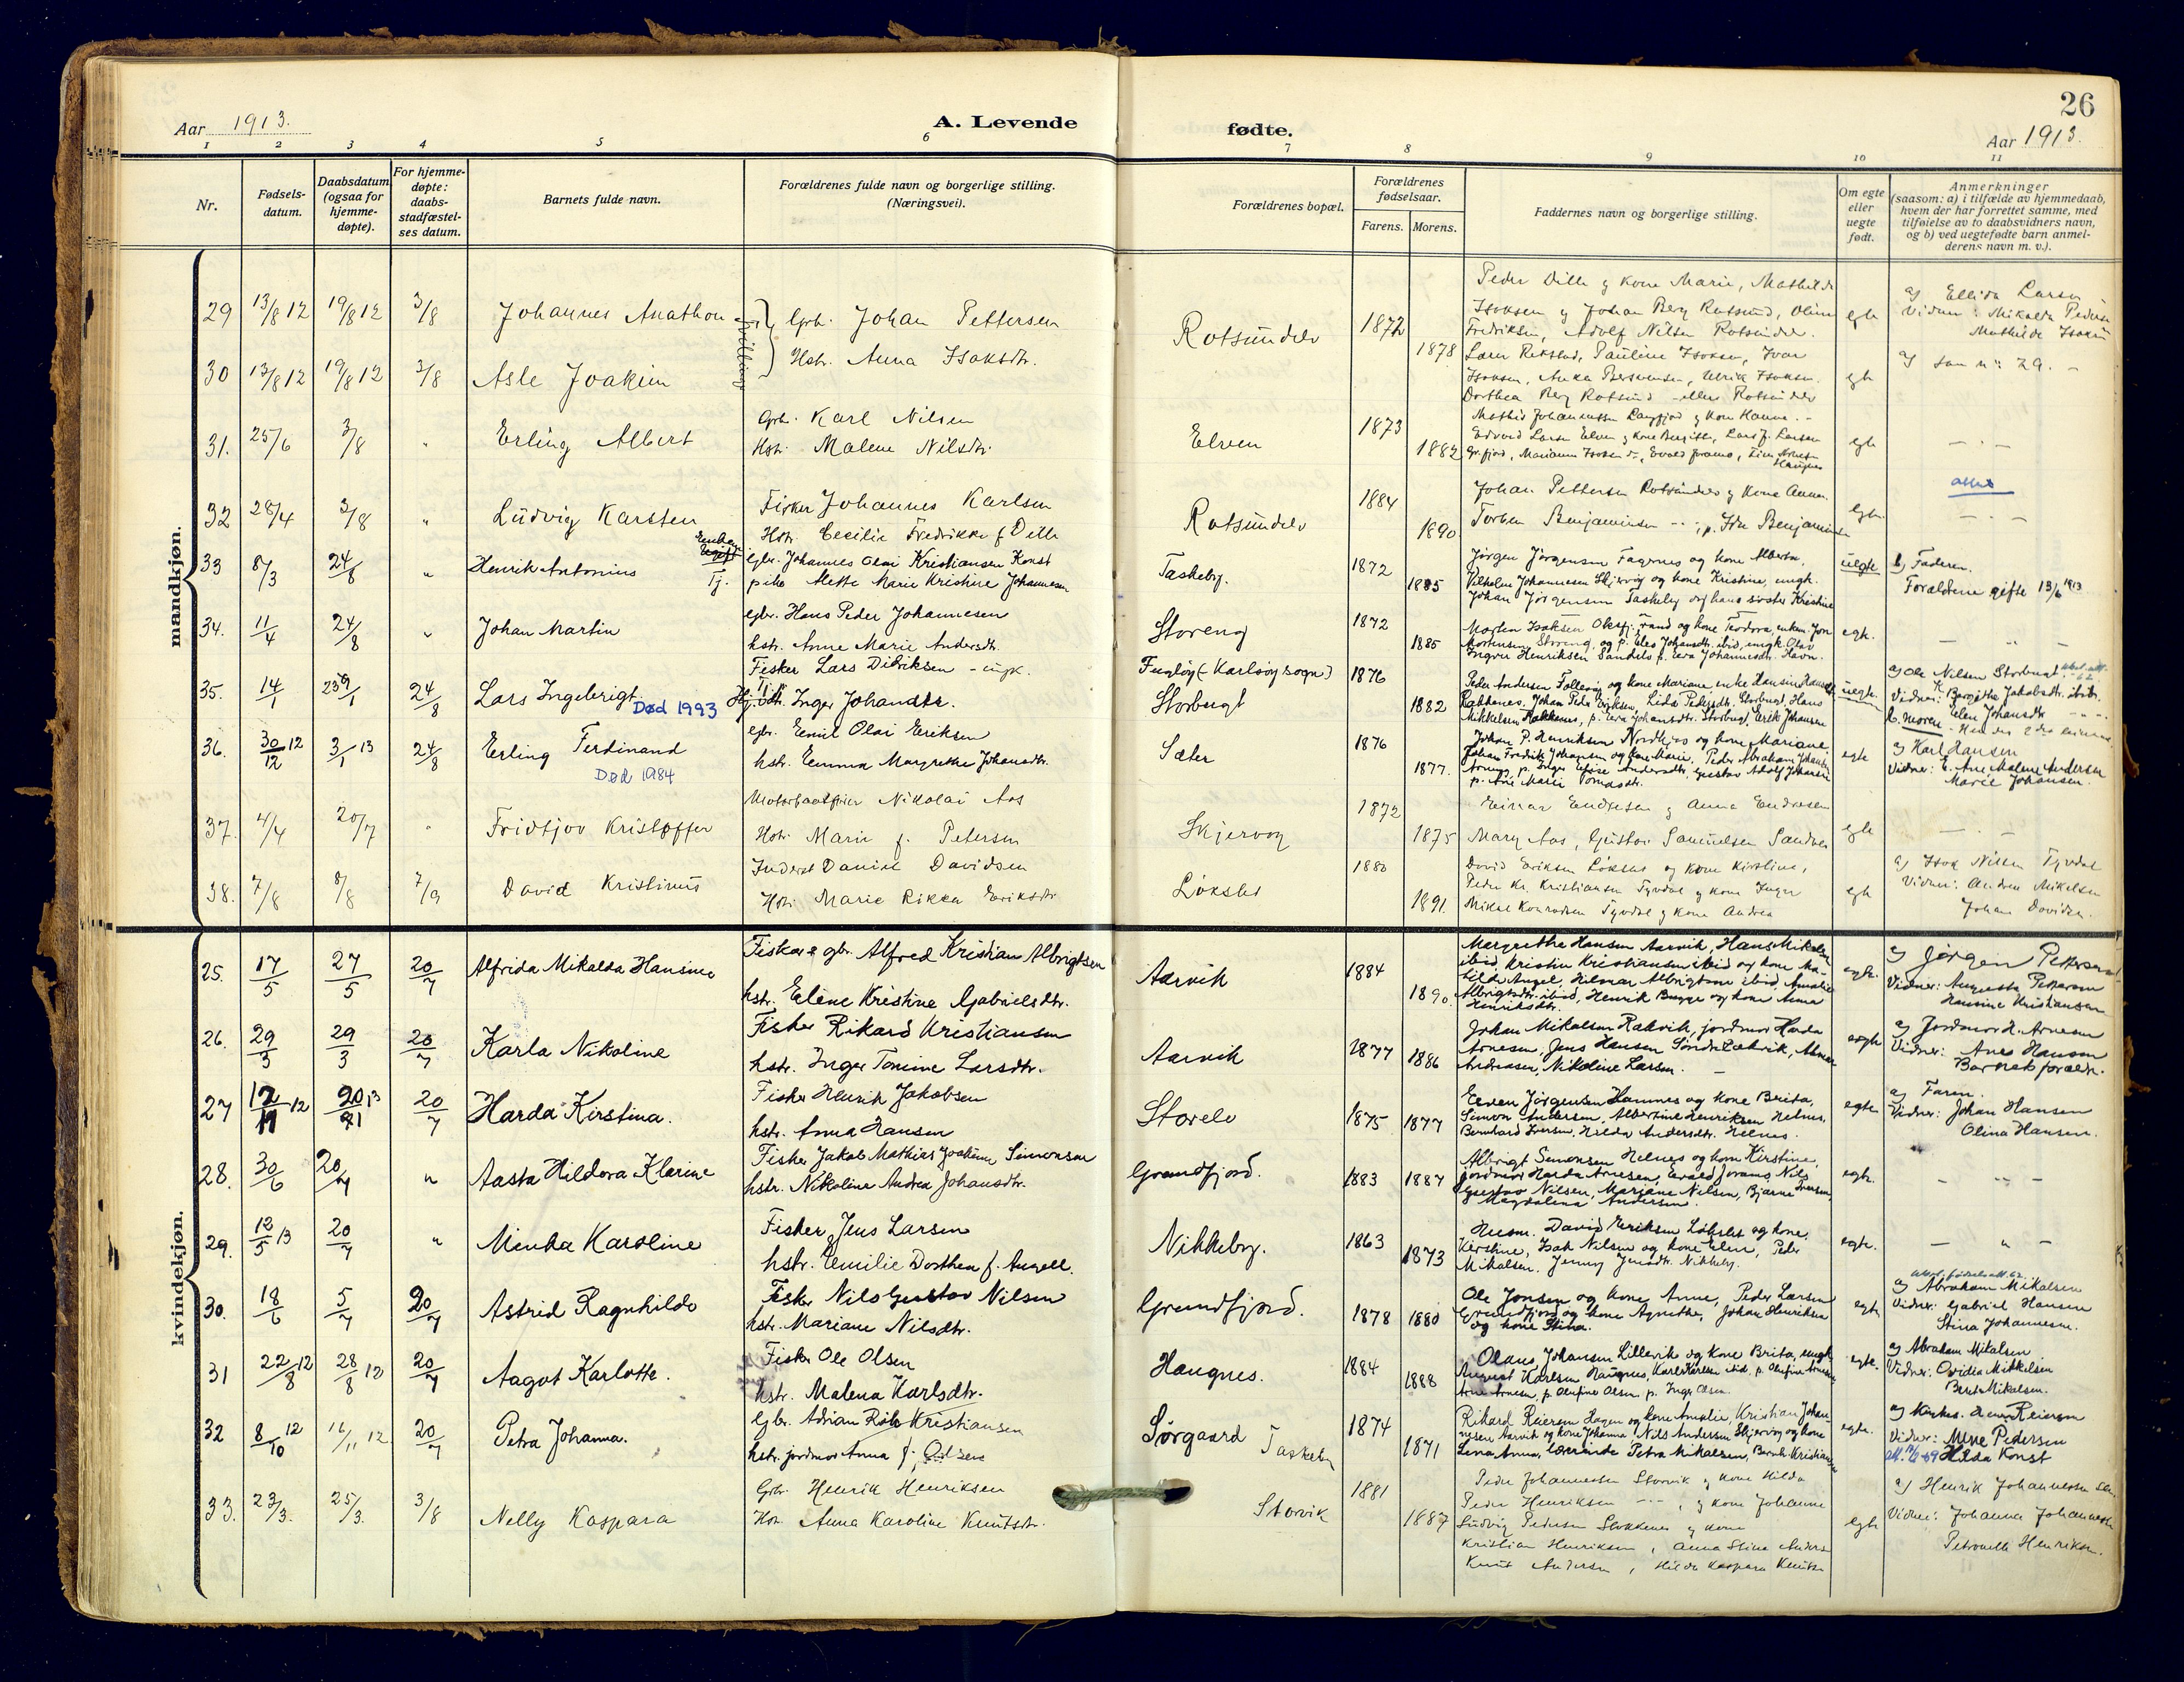 26
Aar 1913.
A. Levende
fødte.
Aar 1913.
1 2 3 4 5 6 7 8 9 10 11
Nr.
Fødsels-
datum.
Daabsdatum
(ogsaa for
hjemme-
døpte).
For hjemme-
døpte:
daabs-
stadfæstel-
ses datum.
Barnets fulde navn.
Forældrenes fulde navn og borgerlige stilling.
(Næringsvei).
Forældrenes bopæl.
Forældrenes
fødselsaar.
Farens. Morens.
Faddernes navn og borgerlige stilling.
Om egte
eller
uegte
født.
Anmerkninger
(saasom: a) i tilfælde av hjemmedaab,
hvem der har forrettet samme, med
tilføielse av to daabsvidners navn,
og b) ved uegtefødte barn anmel-
derens navn m. v.).
mandkjøn.
29 13/8 12 19/8 12 3/8 Johannes Anathon
Gbr. Johan Pettersen
Hstr. Anna Isaksdtr.
Tvilling
Rotsundelv 1872 1878
Peder Dille og kone Marie, Mathilde
Isaksen og Johan Berg Rotsund,
Fredriksen, Adolf Nilsen Rotsundelv.
egte
a) Ellida Larsen
Vidner: Mikalda Pedersen
Mathilde Isaksen
30 13/8 12 19/8 12 3/8 Asle Joakim
Pauline Isaksen, Ivar
Isaksen, Ulrik Isaksen.
Dorthea Berg Rotsund - alle Rotsundelv
egte
a) som nr. 29. -
31. 25/6 3/8 " Erling Albert
Gbr. Karl Nilsen
Hstr. Malene Nilsdtr.
Elven 1873 1882
Mathis Johannessen Langfjord og kone Hanna. -
Edvard Larsen Elven og kone Bergithe, Lars J. Larsen
egte
32 28/4 3/8 " Ludvig Karsten
Fisker Johannes Karlsen
Hstr. Cecilie Fredrikke f. Dille
Rotsundelv 1884 1890
Johan Pettersen Rotsundelv og kone Anna.
Torben Benjaminsen - " -, p. Ida Benjaminsen
egte.
33 8/3 24/8 " Henrik Antonius
Enkem.
Ugift
Tj.
gbr. Johannes Olai Kristiansen Konst
pike Mette Marie Kristine Johannesen
Taskeby. 1872 1885
Jørgen Jørgensen Fagernes og kone Alberta,
Vilhelm Johannesen Skjervøy og kone Kristine, ungk.
Johan Jørgensen Taskeby og hans søster Kristine
uegte
b) Faderen.
Forældrene gifte 13/6 1913
34. 11/4 24/8 " Johan Martin
gbr. Hans Peder Johannesen
hstr. Anne Marie Andersdtr.
Storeng 1872 1885
Morten Isaksen Oksfj. rand og kone Teodora, enkem. Jon
Mortensen Storeng, og p. Eles Johansdtr. ibid, ungk. Olav
Ingvor Henriksen Sandels p. Eva Johannesdtr. Havn.
egte.
35. 14/1 24/8 Lars Ingebrigt
Død 1993
Fisker Lars Didriksen - ungk.
Inger Johansdtr.
Fugløy (- Karlsøy sogn.)
Storbugt 1876 1882
Peder Andersen Follesøy og kone Mariane, enke Hansine
Johan Peder Eriksen, Lida Pedersdtr. Storbugt, Hans
Mikkelsen Hakkenes, p. Eva Johansdtr. Storbugt, Erik Johansen
uegte.
a) Ole Nilsen Storbugt
Vidner: K. Bergithe Jakobsdtr. ibid.
Elen Johansdtr
b. moren
36. 30/12 12 3/1 13 24/8 Erling Ferdinand
Død 1984
gbr. Emil Olai Eriksen
hstr. Emma Margrethe Johansdtr.
Sæter 1876 1877.
Johan P. Henriksen Nordkjos og kone Mariane.
Johan Fredrik Johansen og kone Marie, Peder Abraham Johansen
Gustav Adolf Johansen
p. Ane Marie Tomasdtr.
egte
a) Karl Hansen
Vidner: E. Ane Malene Andersen
Marie Johansen.
37. 4/4 20/7 " Fridtjov Kristoffer
Motorbaatfører Nikolai Aas
Hstr. Marie f. Petersen
Skjervøy 1872 1875
Einar Endresen og Anna Endresen
Mary Aas, Gustav Samuelsen Sandnes
egte
38. 7/8 8/8 7/9 David Kristinus
Inderst Daniel Davidsen
Hstr. Marie Rikka Eriksdtr
Løkslet 1880 1891.
David Eriksen Løkslet og kone Kirstine,
Peder Kr. Kristiansen Tyvdal og kone Inger
Mikal Konradsen Tyvdal og kone Andrea
egte
a) Isak Nilsen Tyvdal
Vidner: Andrea Mikelsen
Johan Davidsen.
kvindekjøn.
25. 17/5 27/5 20/7 Alfrida Mikalda Hansine
Fisker & gbr. Alfred Kristian Albrigtsen
hstr. Eline Kristine Gabrielsdtr.
Aarvik 1884 1890.
Margrethe Hansen Aarvik, Hans Mikalsen
ibid, Kristin Kristiansen ibid og kone Ma-
tilde Angel, Hilmar Albrigtsen ibid, Amalie
Albrigtsdtr. ibid, Henrik Bugge og kone Anna
Henriksdtr.
egte.
a) Jørgen Pettersen
Vidner: Augusta Pettersen
Hansine Kristiansen
26. 29/3 29/3 20/7 Karla Nikoline
Fisker Rikard Kristiansen
hstr. Inger Tomine Larsdtr.
Aarvik 1877 1886
Johan Mikalsen Rakvik, jordmor Harda
Arnesen, Jens Hansen Søndre Lækvik,
Andreasen, Nikoline Larsen. -
egte
a) Jordmor H. Arnesen
Vidner: Anes Hansen
Barnets forældr.
27 20/7 Harda Kirstina.
Fisker Henrik Jakobsen
hstr. Anna Hansen
Storelv 1875 1877
Even Jørgensen Hamnes og kone Berita,
Simon Andersen, Albertine Henriksen Helnes,
Bernhard Iversen, Hilda Andersdtr. Helnes.
egte
a) Faren.
Vidner: Johan Hansen
Olina Hansen.
28. 30/6 20/7 " Aasta Hildora Klarine
Fisker Jakob Mathias Joakim Simonsen
hstr. Nikoline Andrea Johansdtr.
Grundfjord. 1883 1887
Albrigt Simonsen Helnes og kone Kirstine,
jordmor Harda Arnesen, Evald Jorams, Nils
Gustav Nilsen, Mariane Nilsen, Bjarne Iversen
Magdalena Andersen.
egte.
29. 12/5 13 20/7 " Minka Karoline
Fisker Jens Larsen
hstr. Emilie Dorthea f. Angell.
Nikkeby. 1863 1873
Husm. David Eriksen Løkslet og kone
Kirstine, Isak Nilsen og kone Elen, Peder
Mikalsen. Jenny Jensdtr. Nikkeby.
egte.
30. 18/6 5/7 20/7 Astrid Ragnhild
Fisker Nils Gustav Nilsen
hstr. Mariane Nilsdtr.
Grundfjord. 1878 1880
Ole Jonsen og kone Anne, Peder Larsen
Grundfjord og kone Agnethe, Johan Henriksen
og kone Stina.
egte
a) Abraham Mikalsen
Vidner: Gabriel Hansen
Stina Johannesen.
31 22/8 12 28/8 12 20/7 Aagot Karlotte.
Fisker Ole Olsen
hstr. Malena Karlsdtr.
Haugnes. 1884 1888
Olaus Johansen Lillevik og kone Brita, ungk.
August Karlsen Haugnes, Karl Karlsen ibid. p. Olufine Arnesen
Arne Arnesen, p. Olufine Olsen, p. Inger Olsen.
egte.
a) Abraham Mikalsen
Vidner: Ovidia Mikkelsen
Berit Mikalsen.
32 8/10 12 16/11 12 20/7 Petra Johanna.
Gbr. Adrian Rølv Kristiansen
hstr. jordmor Anna f. Olsen
Sørgaard Taskeby 1874 1871
Rikard Reiersen Hagen og kone Amalie, Kristian Johan-
nesen Aarvik og kone Johanna Nils Andersen Skjervøy og kone
Lena Anna, lærerinde Petra Mikalsen, Bernh. Kristiansen
egte.
a) Reiersen
Vidner: Mine Pedersen
Hilda Konst
33. 23/3. 25/3. 3/8 Nelly Kaspara
Gbr. Henrik Henriksen
Hstr. Anna Karoline Knutsdtr.
Storvik 1881 1887
Peder Johannessen Storvik og kone Hilda
Peder Henriksen - " -, og kone Johanne
Ludvig Pedersen Stokkenes og kone
Kristian Henriksen, Anna Stina Anders
Knut Andersen, Hilda Kaspara Knutsen
egte
a) Henrik Johannessen
Vidner: Johanna Johannessen
Petronelle Henriksen.